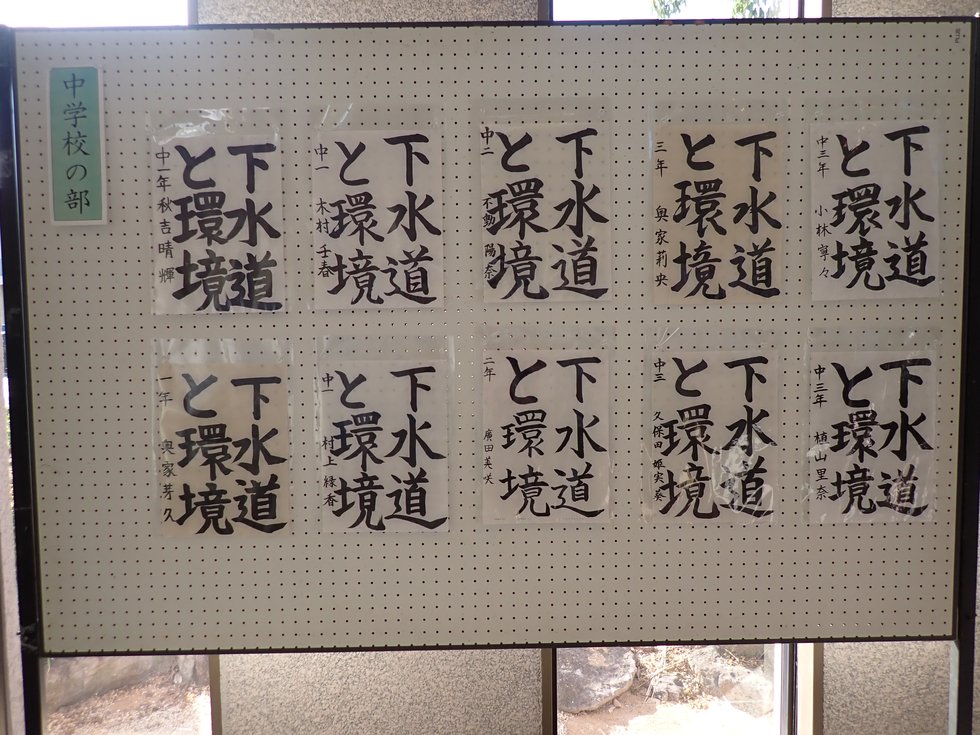 中学校の部
下水道
と環境
中一年 秋吉晴輝
下水道
と環境
中一 木村壬春
下水道
と環境
中二 不動陽奈
下水道
と環境
三年 奥家莉央
下水道
と環境
中三年 小林寧々
下水道
と環境
一年 奥家芽久
下水道
と環境
中一 村上緑香
下水道
と環境
二年 廣田美咲
下水道
と環境
中三 久保田姫実葵
下水道
と環境
中三年 植山里奈